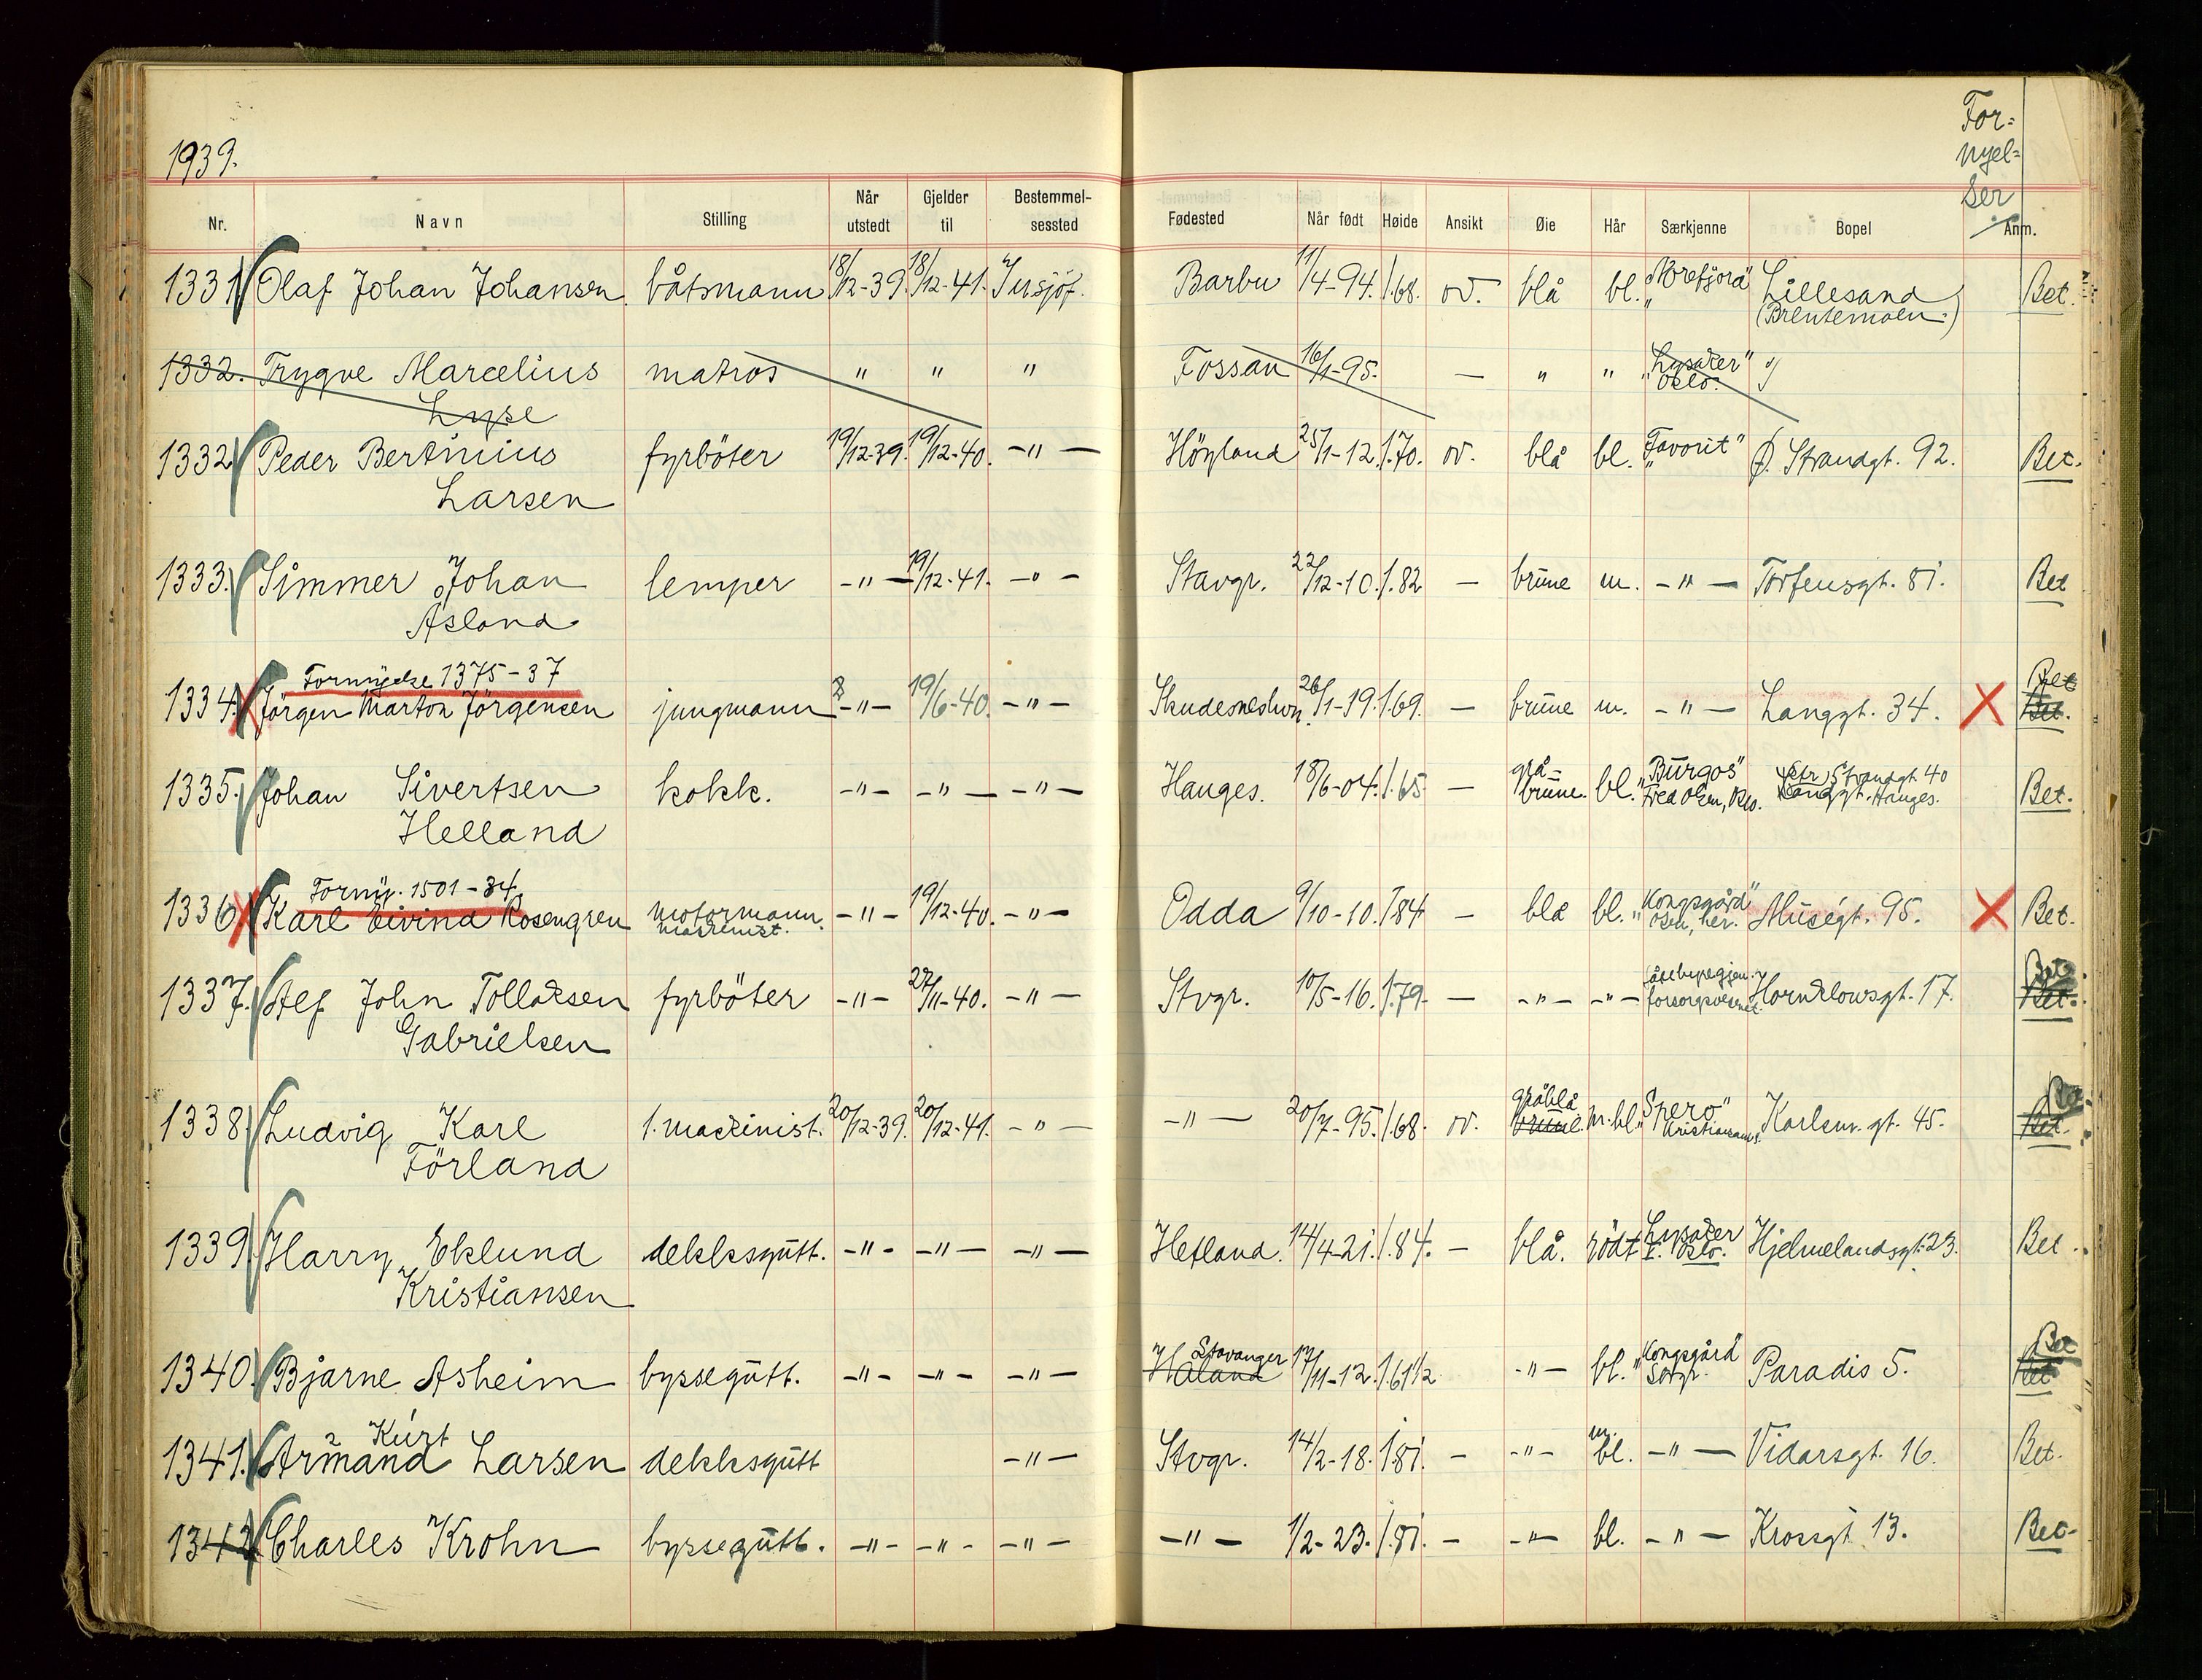 1939.
For=
nyel=
ser
Nr. Navn Stilling Når utstedt Gjelder til Bestemmel-sessted Fødested Når født Høide Ansikt Øie Hår Særkjenne Bopel Anm.
1331 Olaf Johan Johansen båtsmann 18/12-39. 18/12-41. Insjöf. Barbu 11/4-94. 1.68. ov. blå bl. "Norefjord" Lillesand Bet.
(Brentemoen.)
1332. Trygve Marcelius matros " " " Fossan 16/1-95. — " " "Lysaker" Oslo.
Lyse
1332 Peder Bertinius fyrböter 19/12-39. 19/12-40. -"- Höyland 25/1-12. 1.70. ov. blå bl. "Favorit" Ö. Strandgt. 92. Bet.
Larsen
1333. Simmer Johan lemper -"- 19/12-41. -"- Stavgr. 22/12-10. 1.82 — brune m. -"- Torfeusgt. 81. Bet
Åsland
Fornyelse 1375-37
1334. Jörgen Marton Jörgensen jungmann -"- 19/6-40. -"- Skudeneshvn. 26/1-19. 1.69. — brune m. -"- Langgt. 34. X Bet Bet.
1335. Johan Sivertsen kokk. -"- -"- -"- Hauges. 18/6-04. 1.65 — grå-brune. bl. "Burgos" Fred Olsen, Oslo. Str Strandgt. 40 Langgt. Hauges. Bet.
Helland
Forny. 1501-34
1336 Karl Eivind Rosengren motormann. maskinist. -"- 19/12-40. -"- Odda 9/10-10. 1.84 — blå bl. "Kongsgård" Olsen, her. Muségt. 95. X Bet.
1337. Alf John Tollaksen fyrböter -"- 27/11-40. -"- Stvgr. 10/5-16. 1.79. — -"- -"- forsorgsvesenet. Hornklovsgt. 17. Bet Bet.
Gabrielsen
1338 Ludvig Karl 1. maskinist. 20/12-39. 20/12-41. -"- -"- 20/7-95. 1.68. ov. gråblå brune. m.bl. "Spero" Kristiansands. Karlsm. gt. 45. Bet. Bet.
Förland
1339. Harry Eklund dekksgutt. -"- -"- -"- Hetland. 14/4-21. 1.84. — blå. rödt Lysaker I. Oslo. Hjelmelandsgt. 23. Bet.
Kristiansen
1340. Bjarne Asheim byssegutt. -"- -"- -"- Håland Stavanger 17/11-12. 1.61½ -"- bl. "Kongsgård" Stvgr. Paradis 5. Bet Bet
Kurt
1341. Armand Larsen dekksgutt -"- Stvgr. 14/2-18. 1.81. — -"- m. bl. -"- Vidarsgt. 16. Bet.
1342. Charles Krohn byssegutt. -"- -"- -"- -"- 1/2-23. 1.81. — -"- bl. -"- Krossgt 13. Bet.